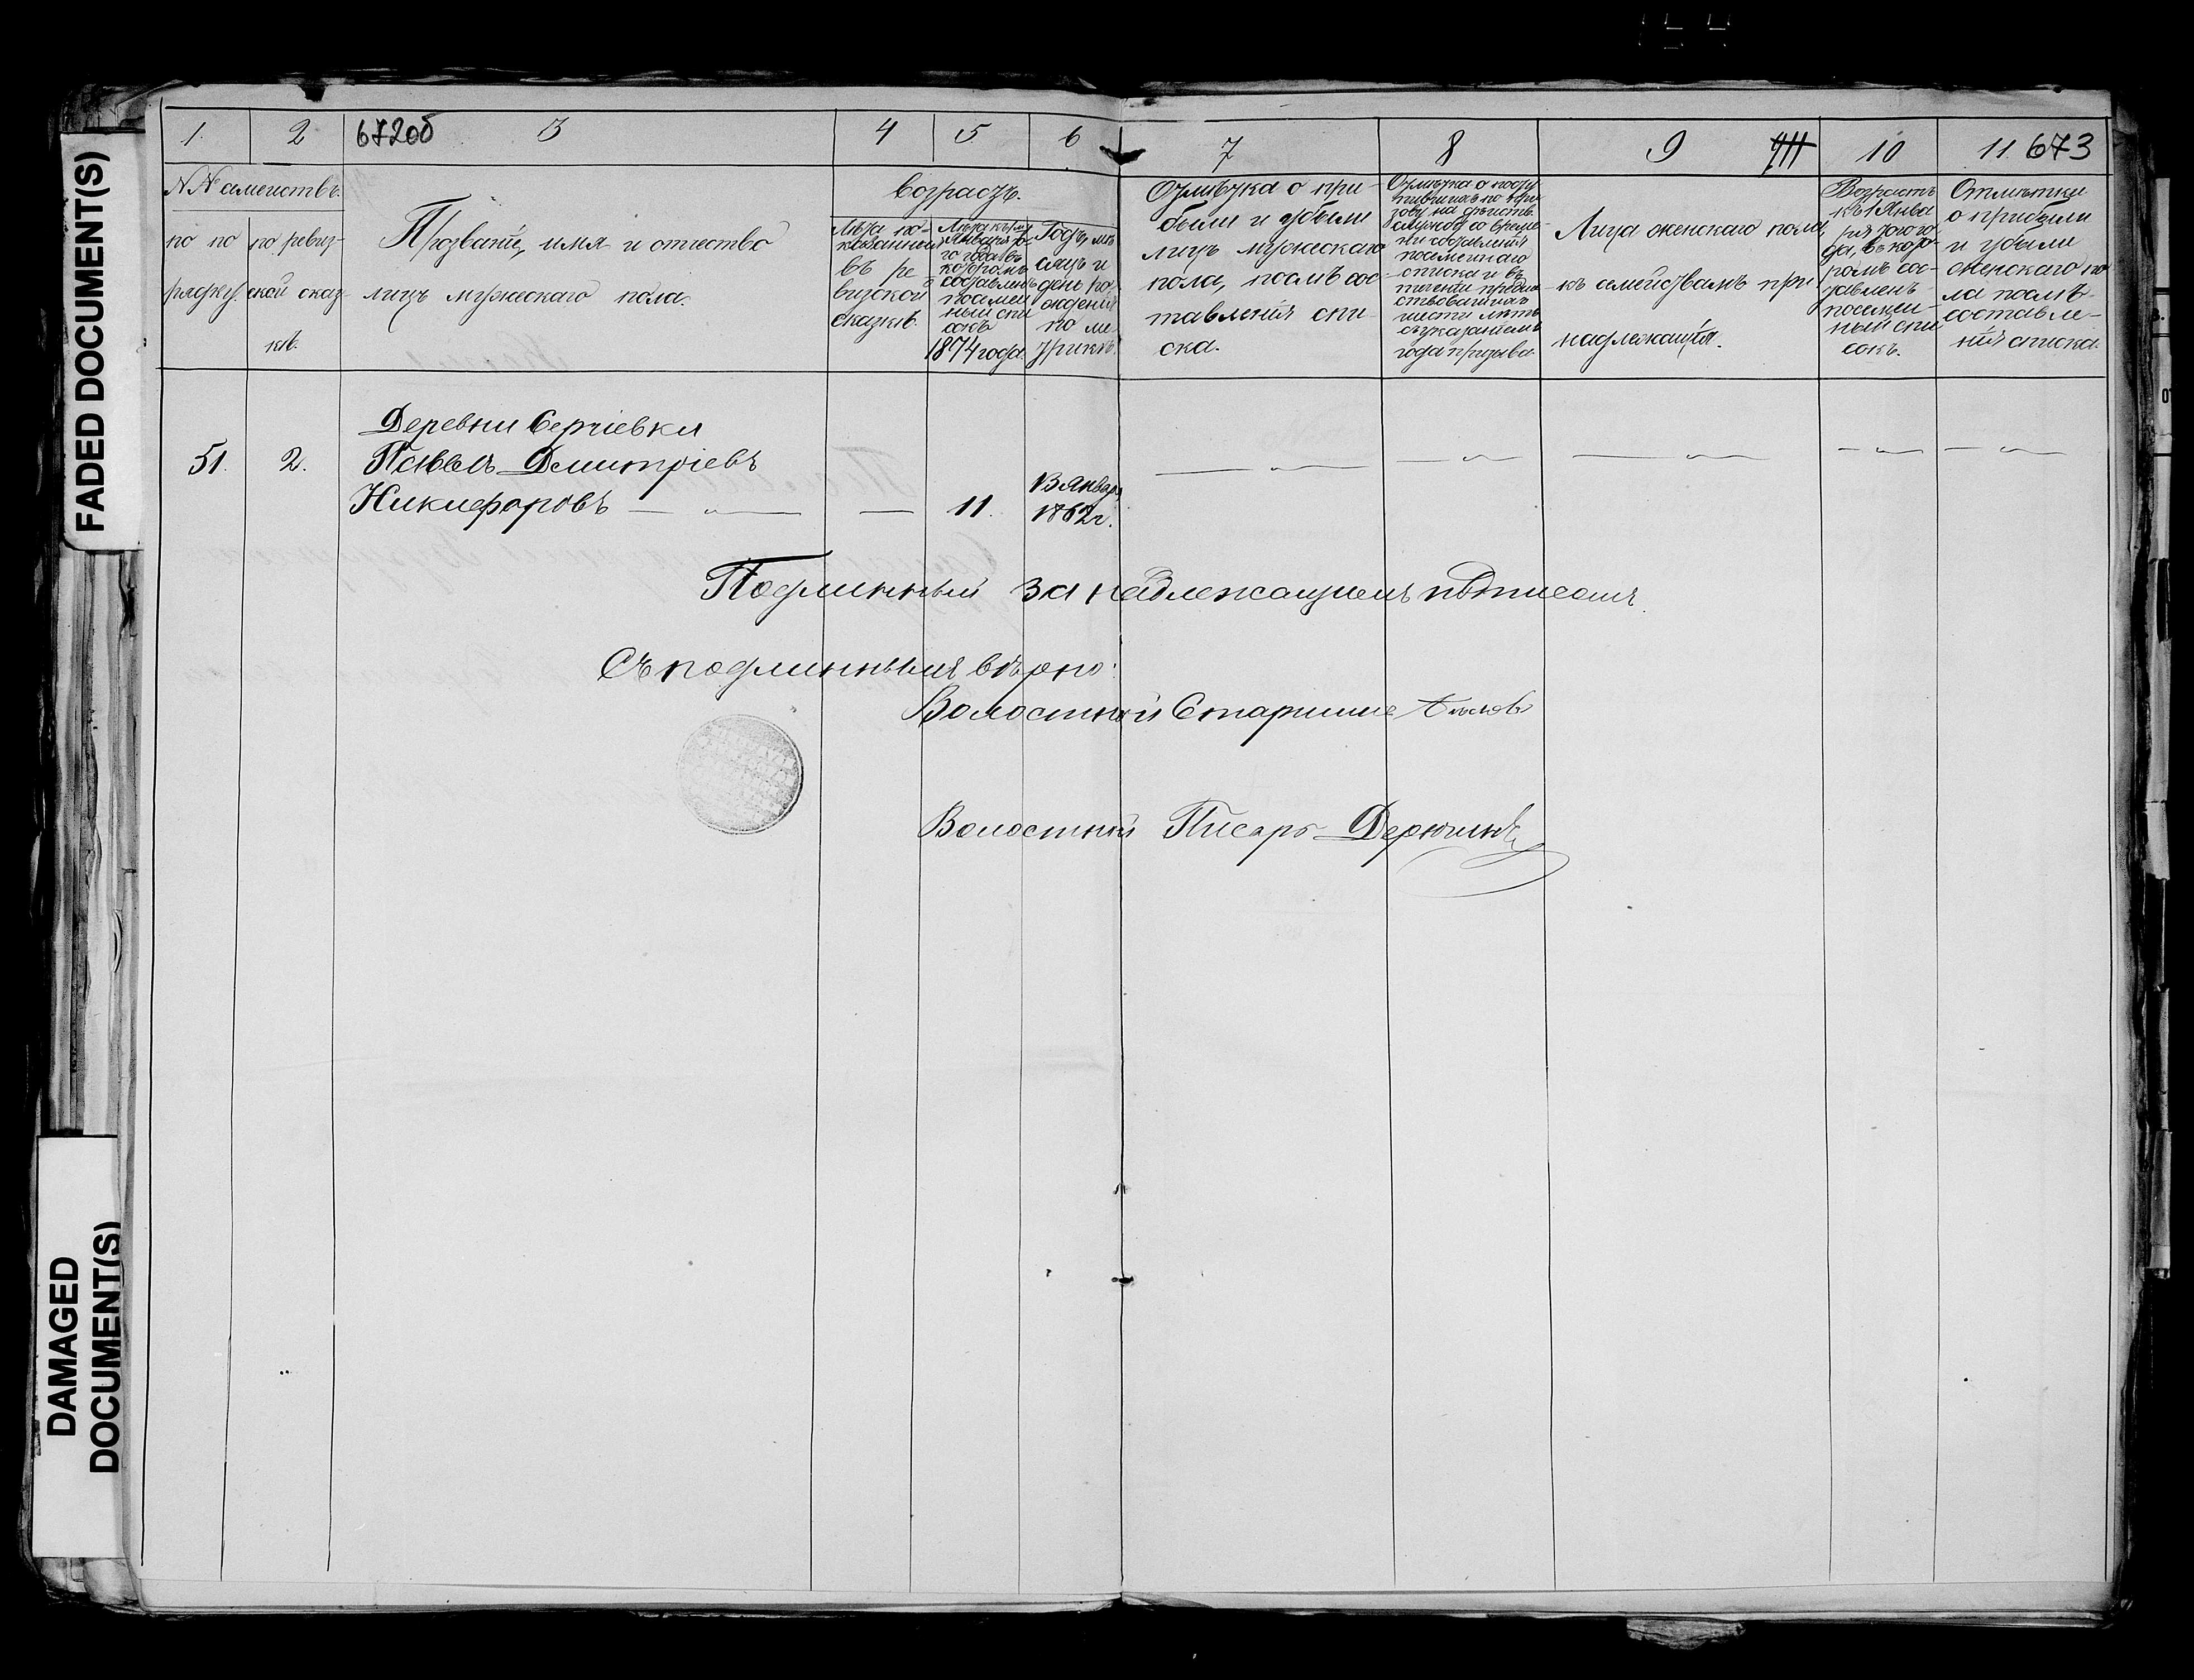 FADED DOCUMENT(S)
DAMAGED
DOCUMENT(S)
1. 2 672об 3 4 5 6 7 8 9 10 11 673
№№ семействъ.
по по
рядку.
по ревиз-
ской сказ-
кѣ.
Прозваніе, имя и отчество
лицъ мужескаго пола.
возрастъ.
Лѣта по-
казанныя
въ ре
визской
сказкѣ.
Лѣта къ 1му
Января то-
го года въ
которомъ
составленъ
посемей
ный спи
сокъ
1874 года.
Годъ, мѣ
сяцъ и
день ро
жденія
по ме
трикѣ.
Отмѣтка о при-
были и убыли
лицъ мужескаго
пола, послѣ сос-
тавленія спи-
ска.
Отмѣтка о посту
пившихъ по при
зову на дѣйств.
службу со време
ни составленія
посемейнаго
списка и въ
теченіи предше
ствовавшихъ
шести лѣтъ
съ указаніемъ
года призыва.
Лица женскаго пола,
къ семействамъ при
надлежащія.
Возрастъ
къ 1 Янва
ря того го
да, въ кото-
ромъ сос-
тавленъ
посемей
ный спи
сокъ.
Отмѣтки
о прибыли
и убыли
женскаго по
ла послѣ
составле-
нія списка.
Деревни Сергіевки
51. 2. Павелъ Дмитріевъ
Никифоровъ — — 11. 13 Января
1862 г.
Подлинный за надлежащимъ подписомъ.
Съ подлиннымъ вѣрно:
Волостной Старшина
Волостной Писарь Дерюгинъ